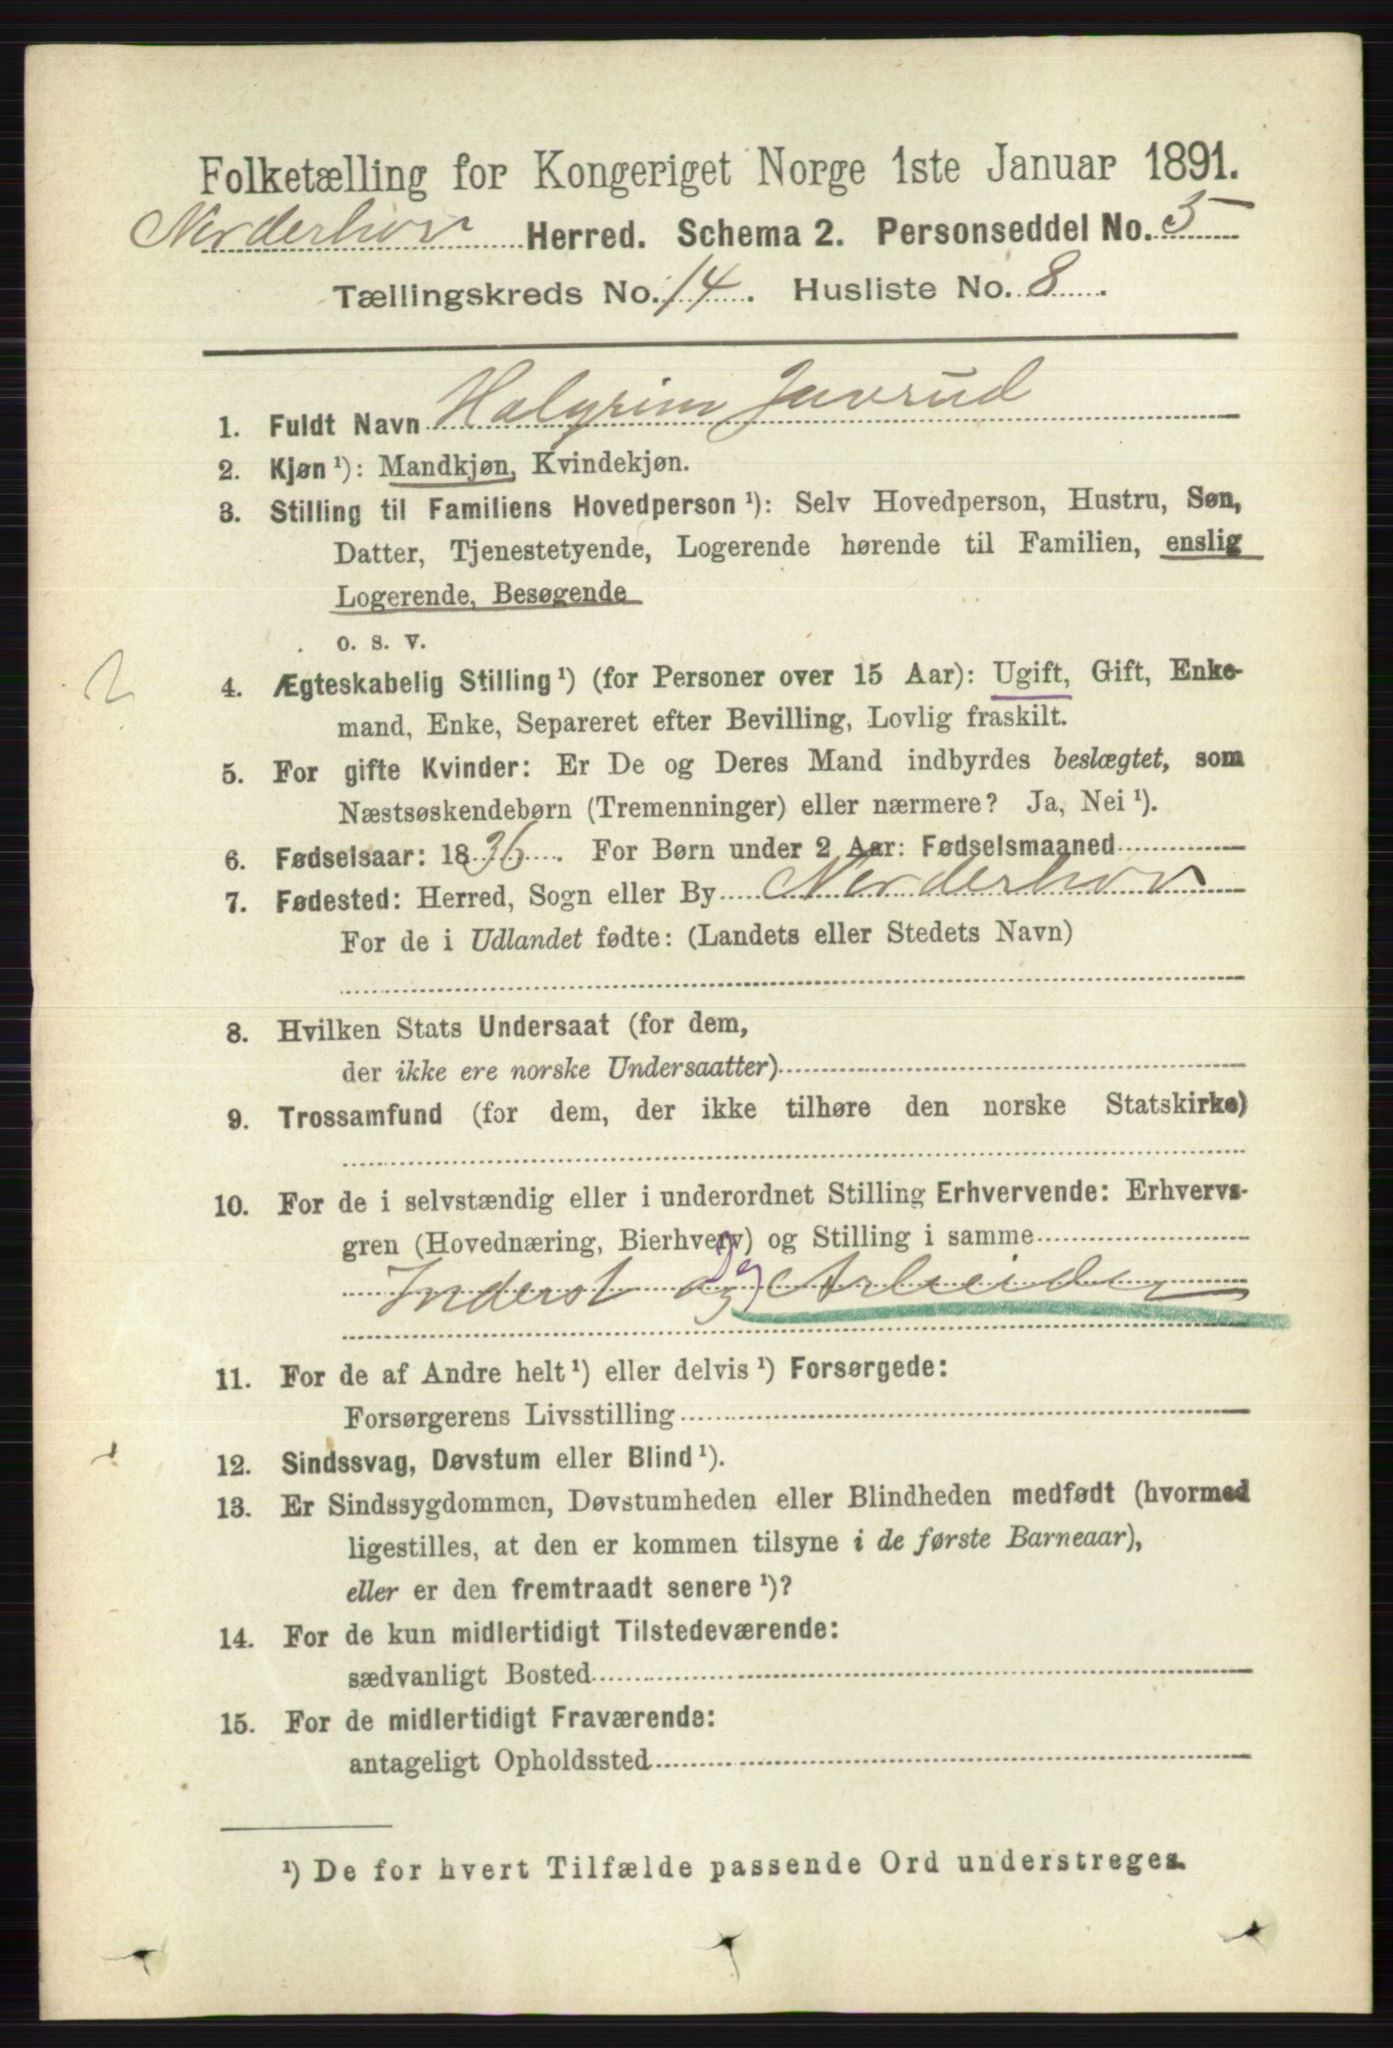 Folketælling for Kongeriget Norge 1ste Januar 1891.
Norderhov Herred. Schema 2. Personseddel No. 5
Tællingskreds No. 14. Husliste No. 8.
1. Fuldt Navn Halgrim Juvrud
2. Kjøn ¹): Mandkjøn, Kvindekjøn.
3. Stilling til Familiens Hovedperson ¹): Selv Hovedperson, Hustru, Søn,
Datter, Tjenestetyende, Logerende hørende til Familien, enslig
Logerende, Besøgende
o. s. v.
2
4. Ægteskabelig Stilling ¹) (for Personer over 15 Aar): Ugift, Gift, Enke-
mand, Enke, Separeret efter Bevilling, Lovlig fraskilt.
5. For gifte Kvinder: Er De og Deres Mand indbyrdes beslægtet, som
Næstsøskendebørn (Tremenninger) eller nærmere? Ja, Nei ¹).
6. Fødselsaar: 1836. For Børn under 2 Aar: Fødselsmaaned
7. Fødested: Herred, Sogn eller By Norderhov
For de i Udlandet fødte: (Landets eller Stedets Navn)
8. Hvilken Stats Undersaat (for dem,
der ikke ere norske Undersaatter)
9. Trossamfund (for dem, der ikke tilhøre den norske Statskirke)
10. For de i selvstændig eller i underordnet Stilling Erhvervende: Erhvervs-
gren (Hovednæring, Bierhverv) og Stilling i samme
Inderst og Arbeider
11. For de af Andre helt ¹) eller delvis ¹) Forsørgede:
Forsørgerens Livsstilling
12. Sindssvag, Døvstum eller Blind ¹).
13. Er Sindssygdommen, Døvstumheden eller Blindheden medfødt (hvormed
ligestilles, at den er kommen tilsyne i de første Barneaar),
eller er den fremtraadt senere ¹)?
14. For de kun midlertidigt Tilstedeværende:
sædvanligt Bosted
15. For de midlertidigt Fraværende:
antageligt Opholdssted
¹) De for hvert Tilfælde passende Ord understreges.